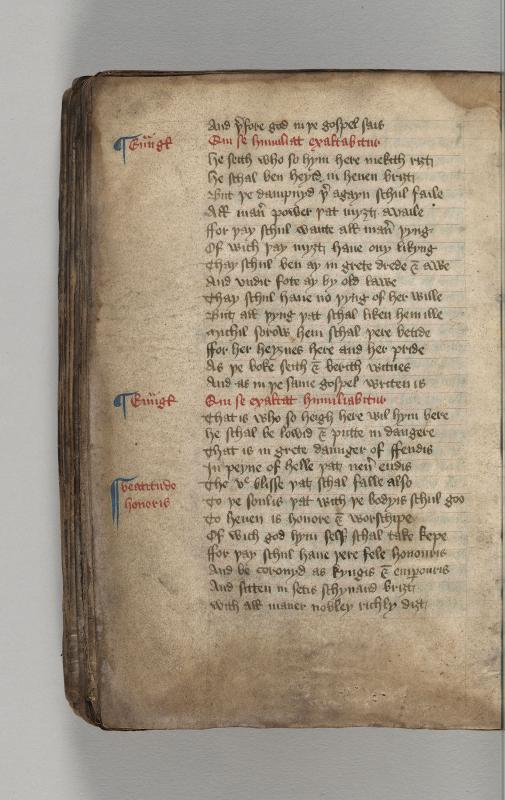 And þfore god in þe gospel sais
¶ Eūngł
Qui se humiliat exaltabitur
He seith who so hym here mekith riȝt
He schal ben heyȝd in heuen briȝt
But þe dampnyd þ̄ agayn schul faile
Aƚƚ man̄ power þat myȝt availe
ffor þay schul wante aƚƚ man̄ þyng
Of wich þay myȝt haue ony likyng
Thay schul ben ay in grete drede ⁊ awe
And vndir fote ay by old lawe
Thay schul haue no þyng of her wille
But aƚƚ þyng þat schal liken hem ille
Michil sorow hem schal þere betide
ffor her heyȝnes here and her pride
As þe boke seith ⁊ berith witnes
And as in þe same gospel writen is
¶ Eūngł
Qui se exaltat humiliabitur
That is who so heigh here wil hym bere
He schal be lowid ⁊ putte in daungere
That is in grete daunger of ffendis
In peyne of helle þat neu̅ endis
¶ beatitudo
honoris
The vᵉ blisse þat schal falle also
To þe soulis þat with þe bodyis schul goo
To heuen is honore ⁊ worschipe
Of wich god hym self schal take kepe
ffor þay schul haue þere fele honouris
And be coronyd as kyngis ⁊ emꝑouris
And sitten in setis schynand briȝt
With aƚƚ maner nobley richly diȝt